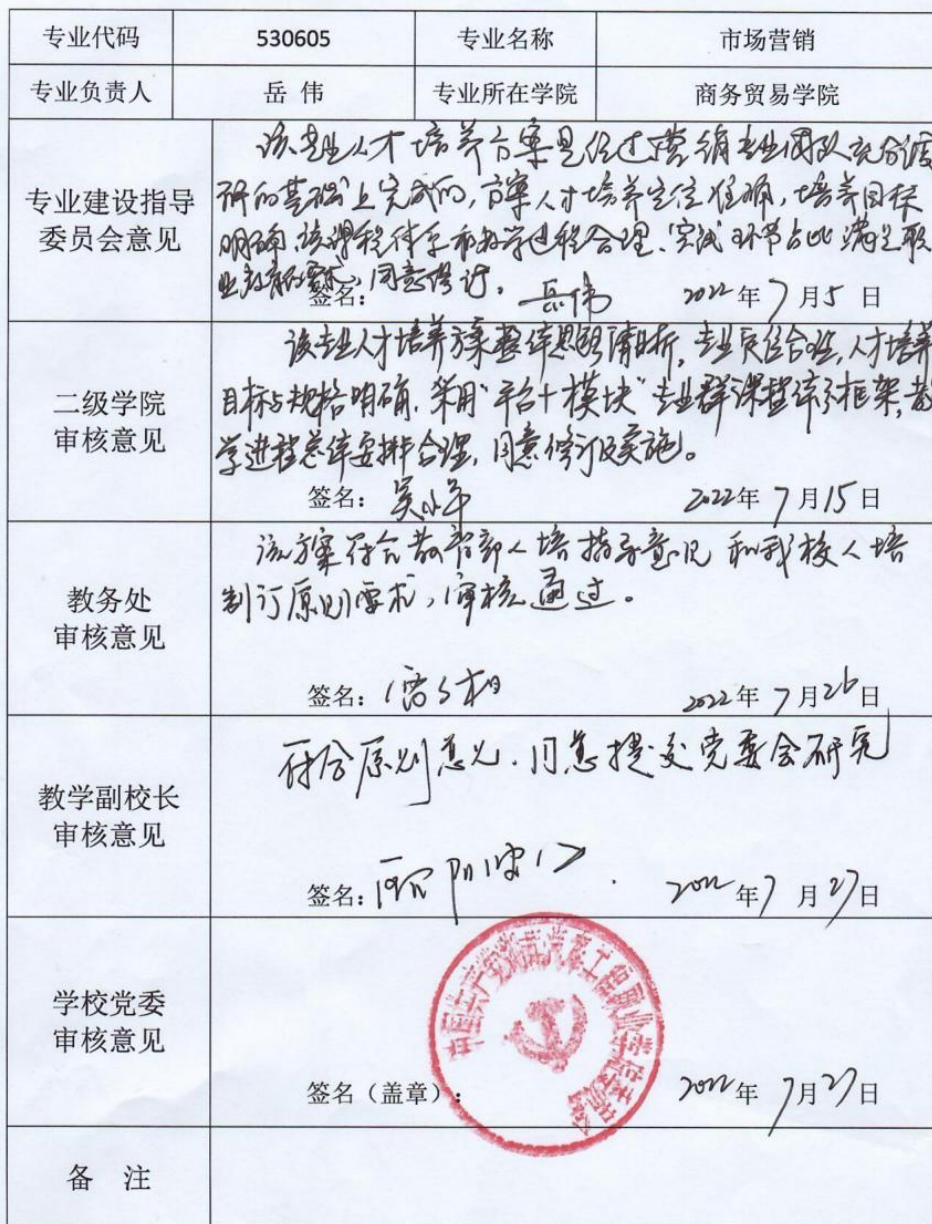 专业代码 530605 专业名称 市场营销
专业负责人 岳 伟 专业所在学院 商务贸易学院
专业建设指导
委员会意见
该专业人才培养方案是经过营销专业团队充分调
研的基础上完成的,方案人才培养定位准确,培养目标
明确,该课程体系和教学进程合理、实践环节占比满足职
业教育要求,同意修订。
签名: 岳伟 2022年7月5日
二级学院
审核意见
该专业人才培养方案整体思路清晰,专业定位合理,人才培养
目标与规格明确,采用“平台+模块”专业群课程体系框架,教
学进程总体安排合理,同意修订及实施。
签名: 2022年7月15日
教务处
审核意见
该方案符合教育部人培指导意见和我校人培
制订原则要求,审核通过。
签名: 2022年7月26日
教学副校长
审核意见
符合原则意见.同意提交党委会研究
签名: 2022年7月27日
学校党委
审核意见
中国共产党湖南汽车工程职业学院委员会
签名(盖章): 2022年7月27日
备 注